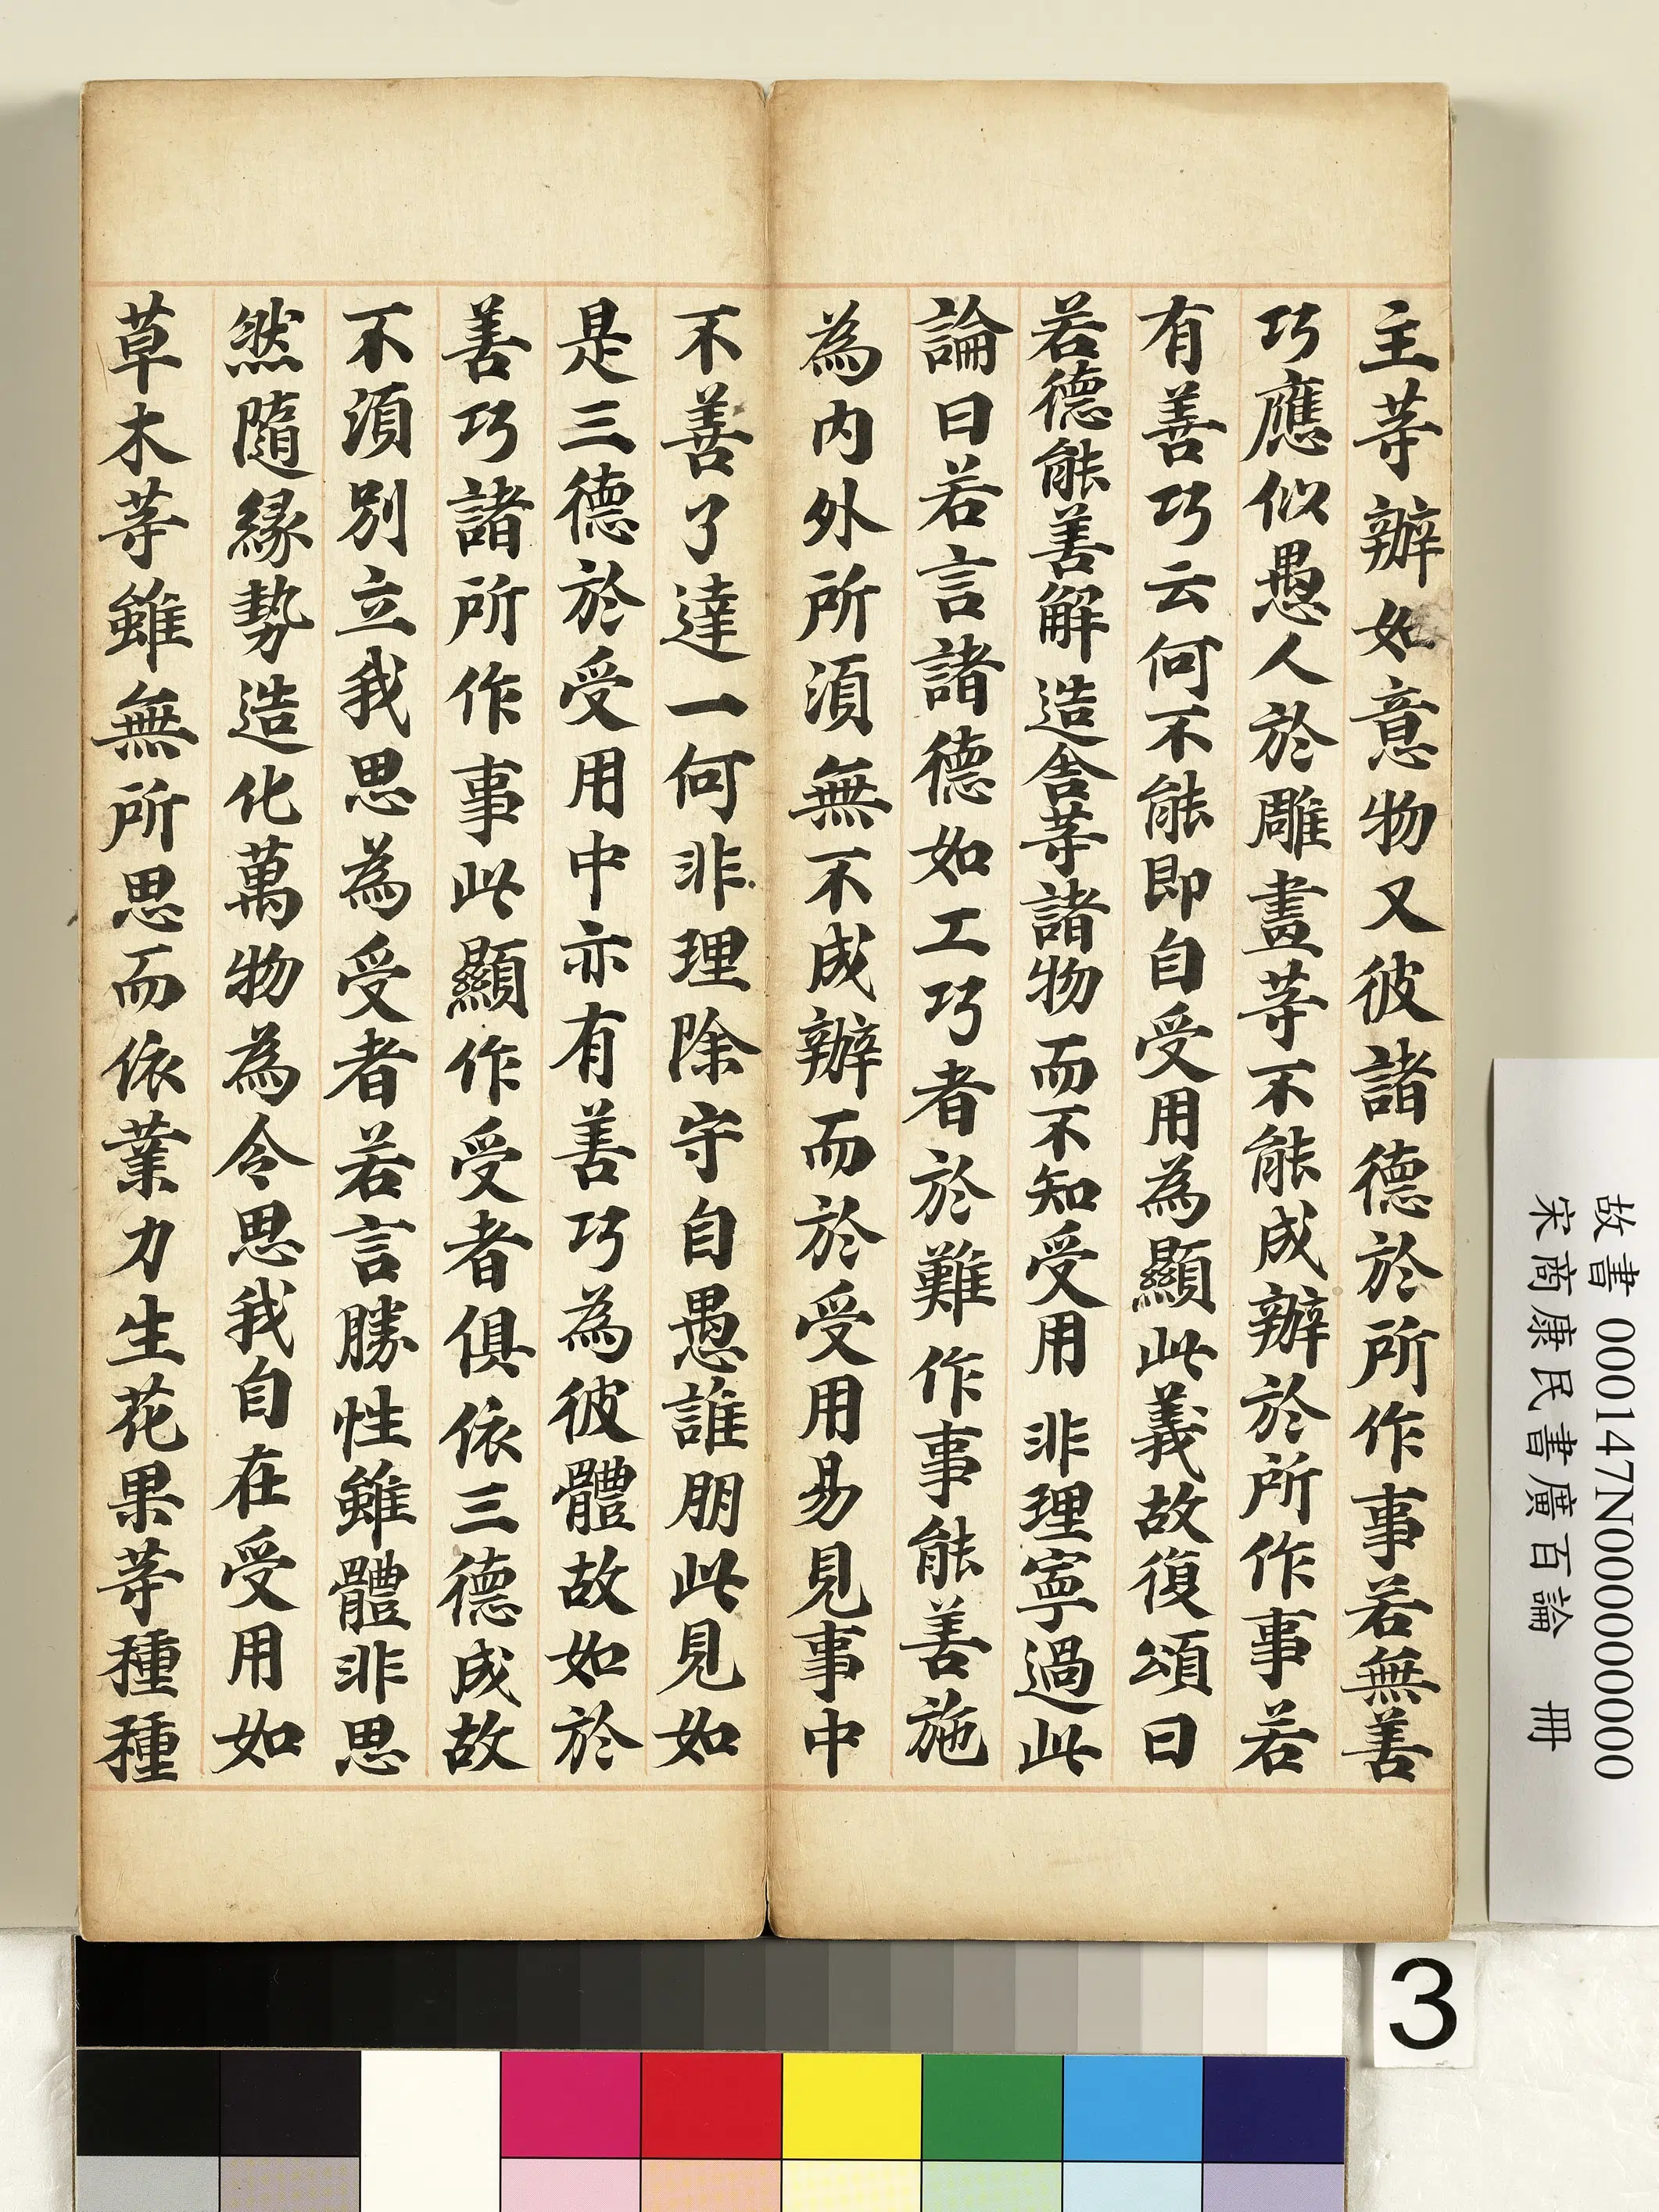 主等辦如意物又彼諸德於所作事若無善
巧應似愚人於雕畫等不能成辦於所作事若
有善巧云何不能即自受用為顯此義故復頌曰
若德能善解 造舍等諸物 而不知受用 非理寧過此
論曰若言諸德如工巧者於難作事能善施
為内外所須無不成辦而於受用易見事中
不善了達一何非理除守自愚誰朋此見如
是三德於受用中亦有善巧為彼體故如於
善巧諸所作事此顯作受者俱依三德成故
不須別立我思為受者若言勝性雖體非思
然隨緣勢造化萬物為令思我自在受用如
草木等雖無所思而依業力生花果等種種
故書 000147N000000000
宋商康民書廣百論 冊
3